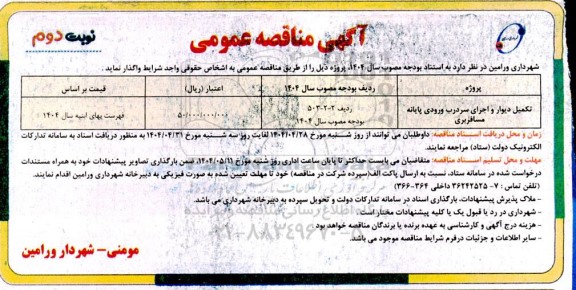 آگهی مناقصه عمومی
نوبت دوم
شهرداری ورامین در نظر دارد به استناد بودجه مصوب سال ۱۴۰۴، پروژه ذیل را از طریق مناقصه عمومی به اشخاص حقوقی واجد شرایط واگذار نماید.
پروژه	ردیف بودجه مصوب سال ۱۴۰۴	اعتبار (ریال)	قیمت بر اساس
تکمیل دیوار و اجرای سردرب ورودی پایانه مسافربری	ردیف ۲-۲-۵۰۳ بودجه مصوب سال ۱۴۰۴	۵۰/۰۰۰/۰۰۰/۰۰۰	فهرست بهای ابنیه سال ۱۴۰۴
زمان و محل دریافت اسناد مناقصه: داوطلبان می توانند از روز شنبه مورخ ۱۴۰۴/۰۴/۲۸ لغایت روز سه شنبه مورخ ۱۴۰۴/۰۴/۳۱ به منظور دریافت اسناد به سامانه تدارکات
الکترونیک دولت (ستاد) مراجعه نمایند.
مهلت و محل تسلیم اسناد مناقصه: متقاضیان می بایست حداکثر تا پایان ساعت اداری روز شنبه مورخ ۱۴۰۴/۰۵/۱۱، ضمن بارگذاری تصاویر پیشنهادات خود به همراه مستندات
درخواست شده در سامانه ستاد، نسبت به ارسال پاکت الف(سپرده شرکت در مناقصه) خود تا مهلت تعیین شده به صورت فیزیکی به دبیرخانه شهرداری ورامین اقدام نمایند.
(تلفن تماس : ۷- ۳۶۲۴۲۵۲۵ داخلی ۳۶۴-۳۶۶)
- ملاک پذیرش پیشنهادات، بارگذاری اسناد در سامانه تدارکات دولت و تحویل سپرده به دبیرخانه شهرداری می باشد.
- شهرداری در رد یا قبول یک یا کلیه پیشنهادات مختار است.
- هزینه درج آگهی و کارشناسی به عهده برنده یا برندگان مناقصه خواهد بود
- سایر اطلاعات و جزئیات در فرم شرایط مناقصه موجود می باشد.
مومنی- شهردار ورامین